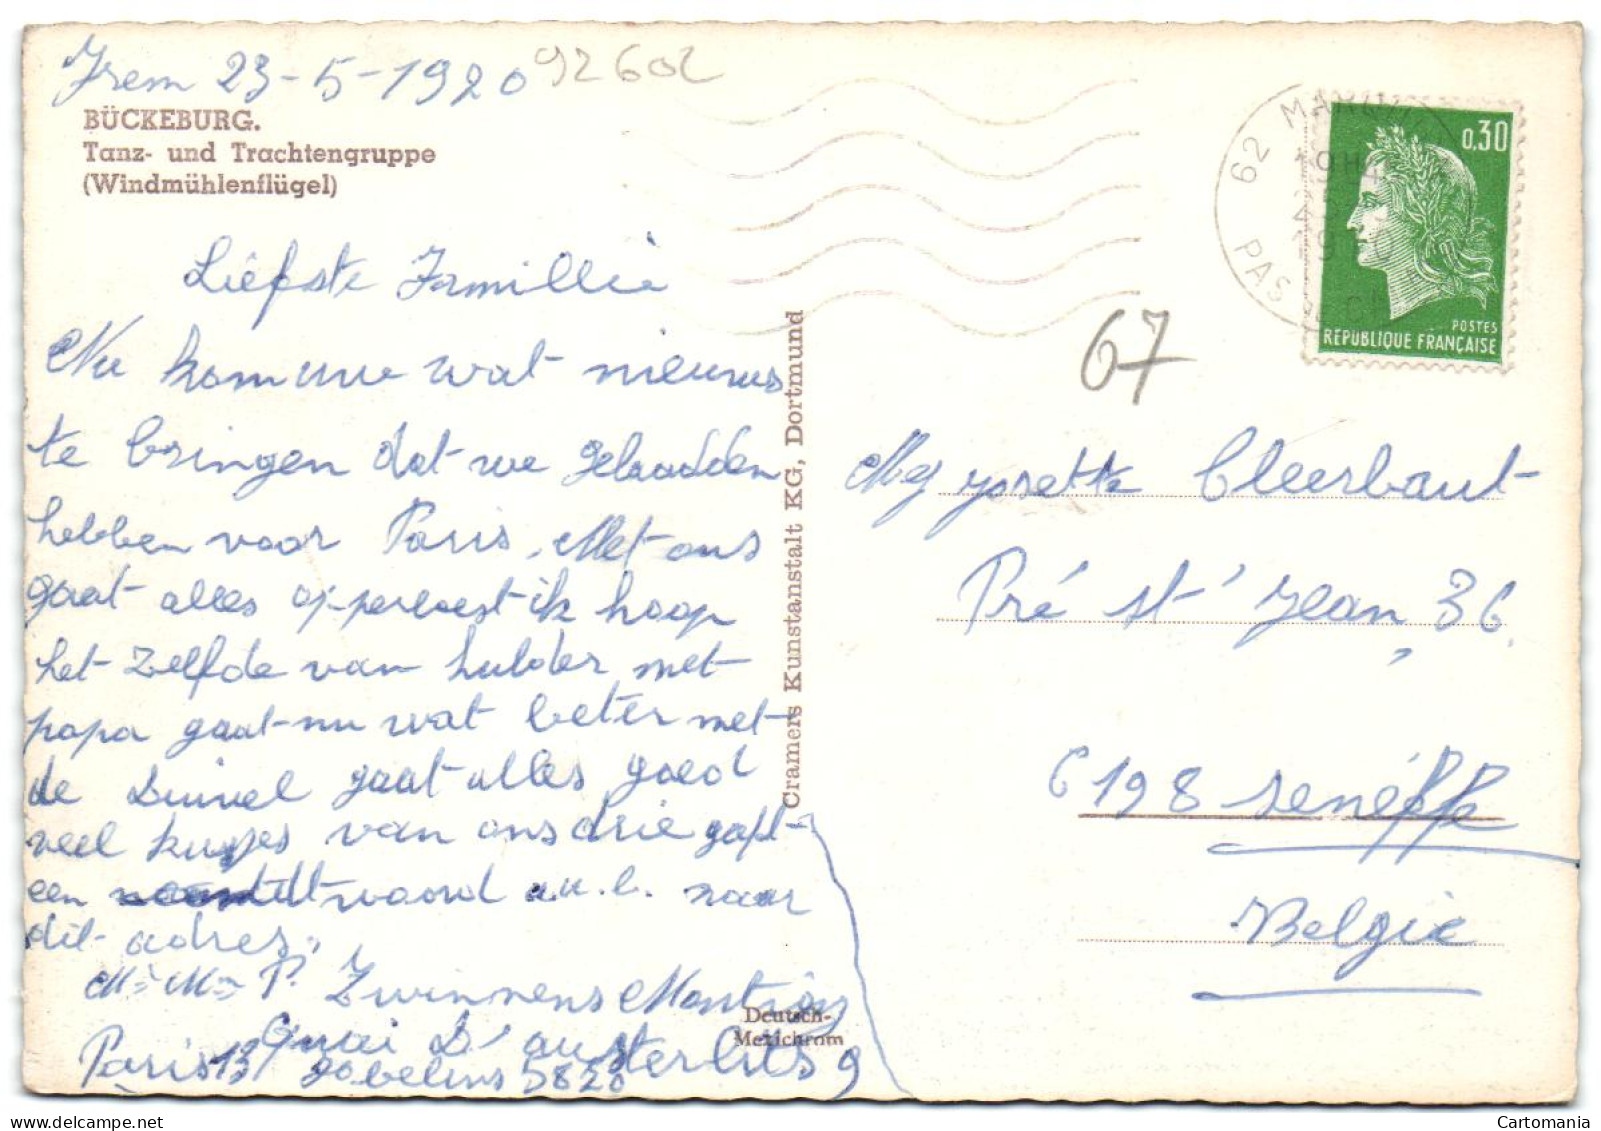 23-5-1970 92602
BÜCKEBURG.
Tanz- und Trachtengruppe
(Windmühlenflügel)
Liefste Famillie
Nu kom uwe wat nieuws
te bringen dat we gelaadden
hebben voor Paris. Met ons
gaat alles opperbest ik hoop
het zelfde van hulder met
papa gaat nu wat beter met
de Duivel gaat alles goed
veel kusjes van ons drie
een woord a.u.b. naar
dit adres.
P. Zwinnens
Quai D'austerlits 9
Paris 13 gobelins 5820
Cramers Kunstanstalt KG, Dortmund
Deutsch-
Mexichrom
62
PAS
19H
0,30
POSTES
REPUBLIQUE FRANÇAISE
67
Cleerbaut
Pré st' Jean 36.
6198 Senéffe
Belgie
Cartomania